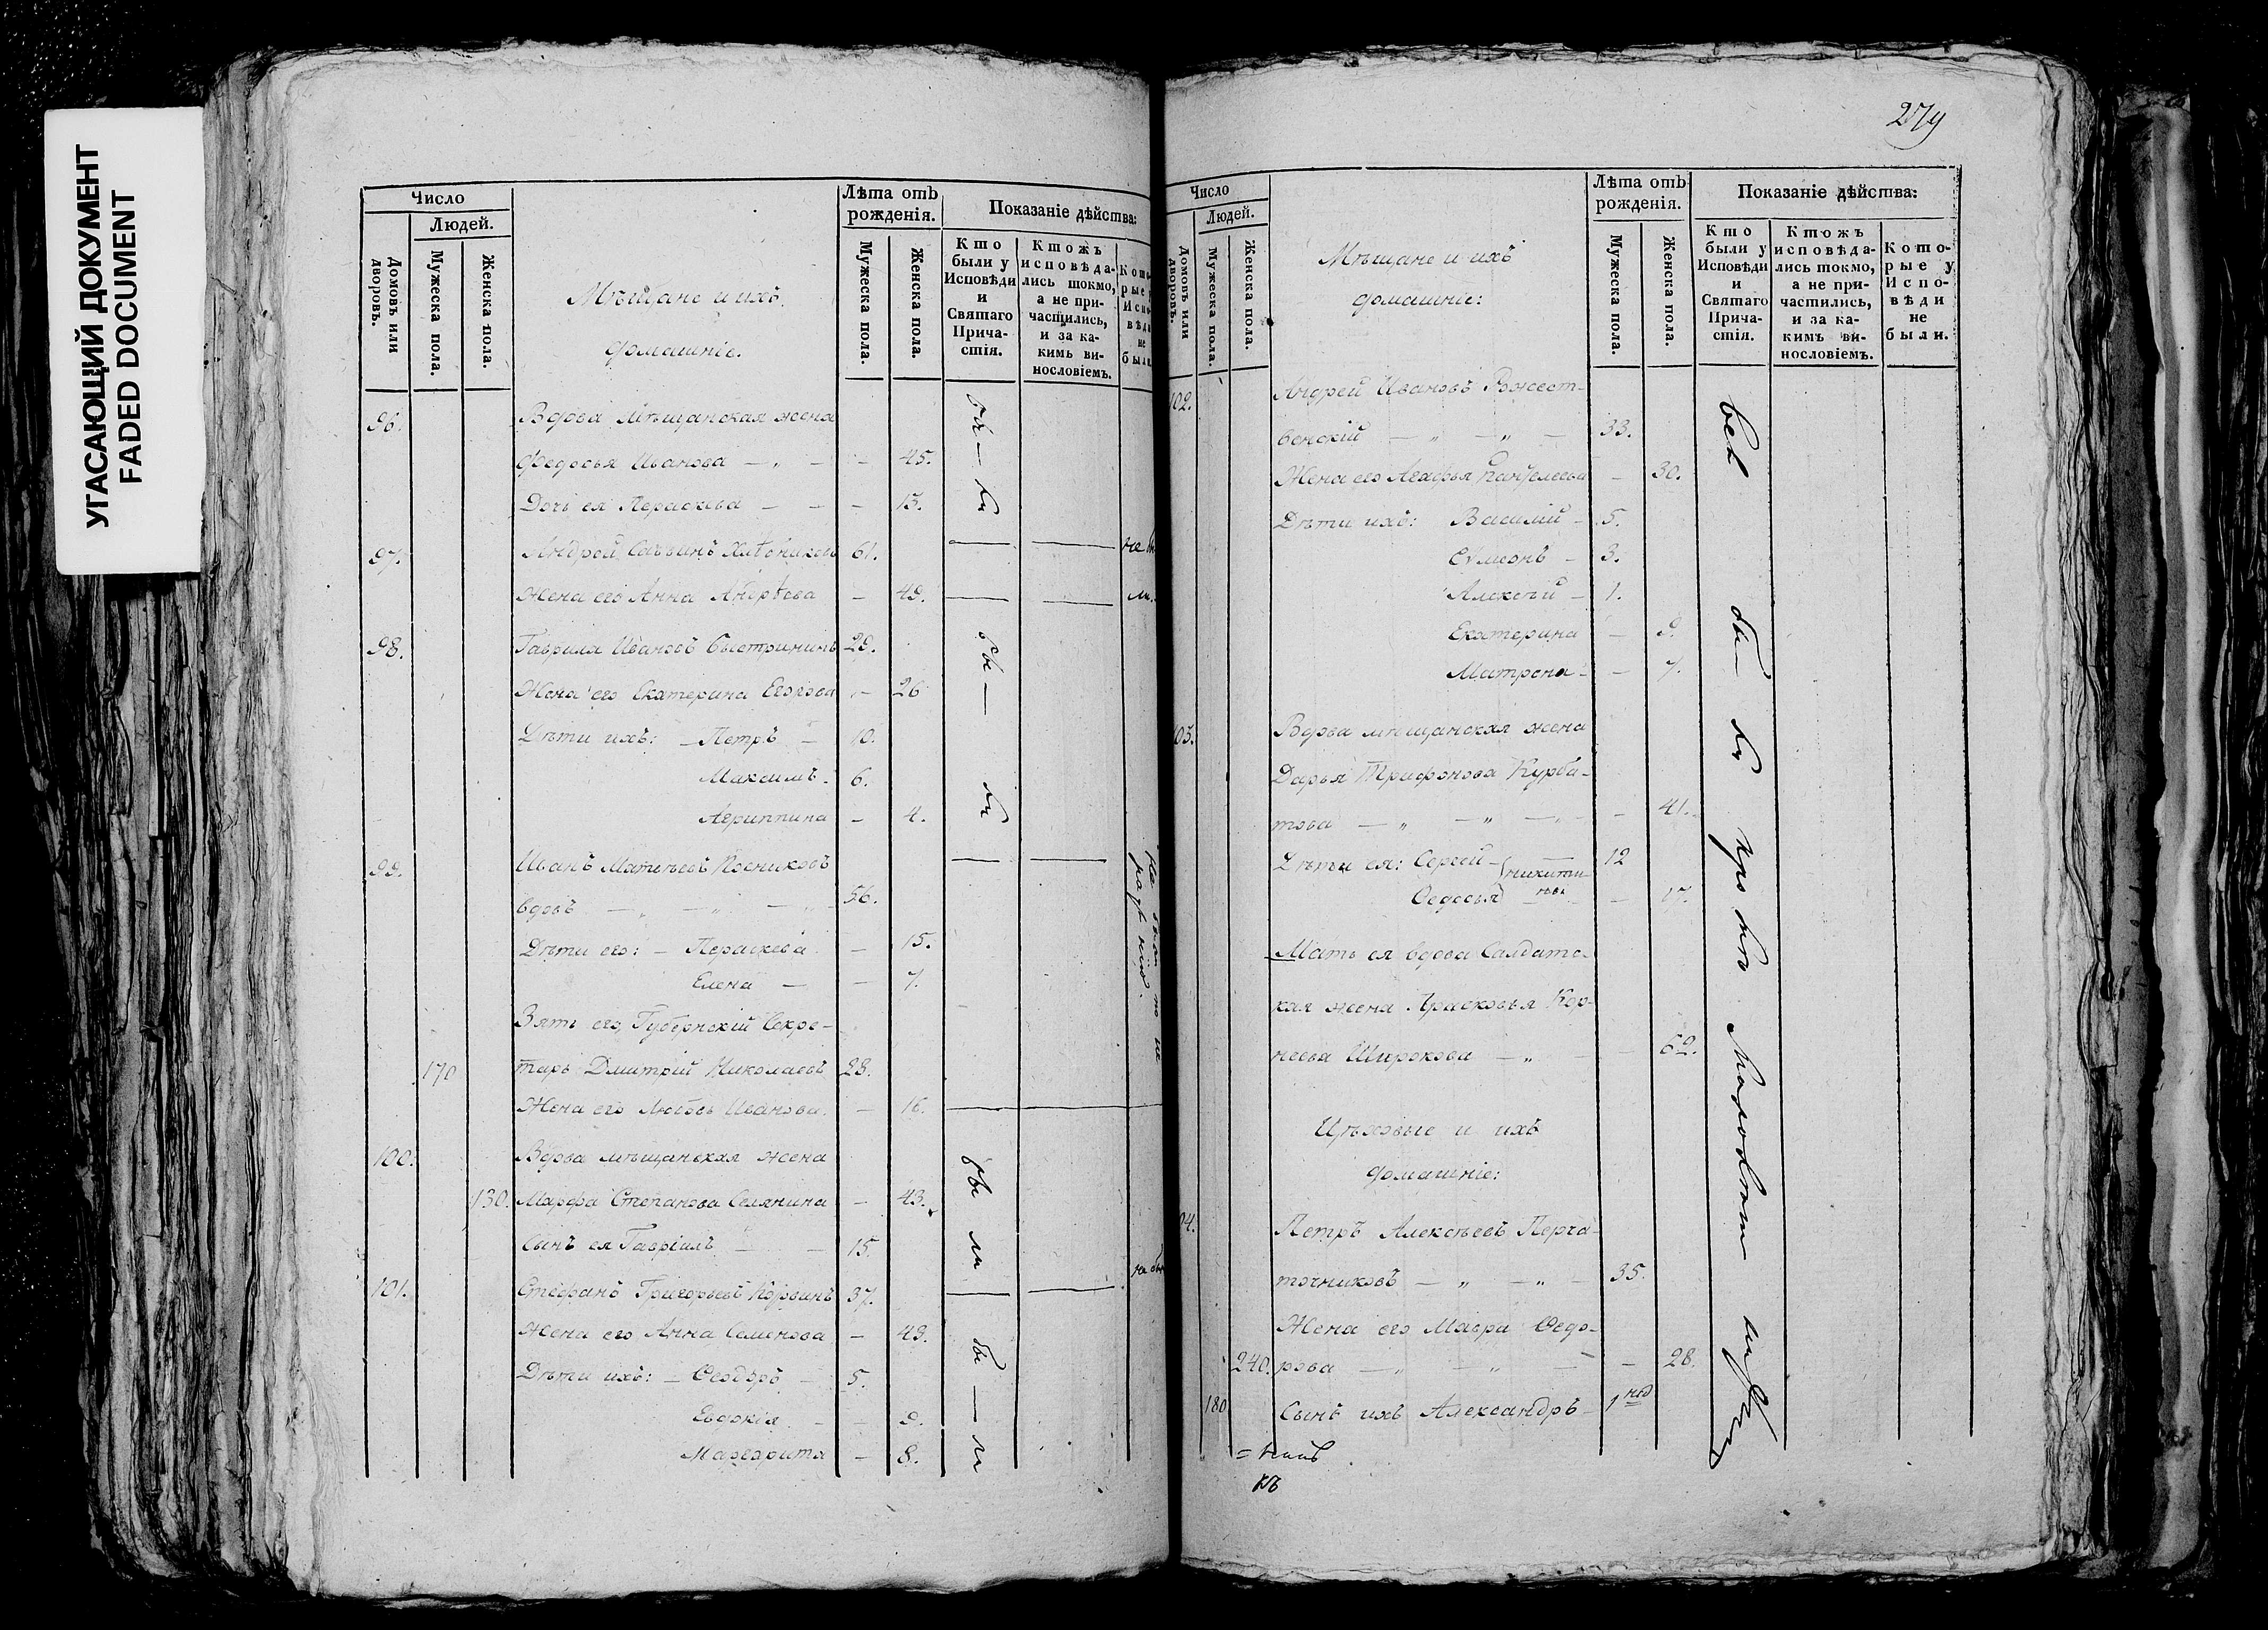 УГАСАЮЩИЙ ДОКУМЕНТ
FADED DOCUMENT
Число
Людей.
Домовъ или дворовъ.
Мужеска пола.
Женска пола.
Мѣщане и ихъ
домашніе.
Лѣта отъ
рожденія.
Мужеска пола.
Женска пола.
Показаніе дѣйства:
Кто
были у
Исповѣди
и
Святаго
Прича-
стія.
Ктожъ
исповѣда-
лись токмо,
а не при-
частились,
и за ка-
кимъ ви-
нословіемъ.
96. Вдова Мѣщанская жена
Федосья Иванова — „ — - 45.
Дочь ея Параскева — — - 13.
97. Андрей Саввинъ 61. не
Жена его Анна Андрѣева - 49. ли.
98. Гаврила Ивановъ Быстрининъ 29.
Жена его Екатерина Егорова - 26
Дѣти ихъ: — Петръ — 10.
Максимъ - 6.
Агриппина - 4.
99. Иванъ Матвѣевъ
вдовъ — „ — „ — „ 56.
Дѣти его: — Параскева - 15.
Елена — - 7.
Зять его, Губернскій Секре-
170 тарь Дмитрій Николаевъ 28.
Жена его Любовь Иванова. - 16.
100. Вдова мѣщанская жена
130. Марфа Степанова Селянина - 43.
Сынъ ея Гавріилъ — — 15.
101. Стефанъ Григорьевъ 37.
Жена его Анна Семенова - 49.
Дѣти ихъ: — Феодоръ — 5.
Евдокія — - 9.
Маргарита - 8.
279
Число
Людей.
Домовъ или дворовъ.
Мужеска пола.
Женска пола.
Мѣщане и ихъ
домашніе:
Лѣта отъ
рожденія.
Мужеска пола.
Женска пола.
Показаніе дѣйства:
Кто
были у
Исповѣди
и
Святаго
Прича-
стія.
Ктожъ
исповѣда-
лись токмо,
а не при-
частились,
и за ка-
кимъ ви-
нословіемъ.
Кото-
рые у
Испо-
вѣди
не
были.
102. Андрей Ивановъ Рожест-
венскій — „ — „ — 33.
Жена его Агафья Пантелеева - 30.
Дѣти ихъ: Василій - 5.
Симеонъ - 3.
Алексій - 1.
Екатерина - 9.
Матрона - - 7.
Вдова мѣщанская жена
Дарья Трифонова Курба-
това — „ — „ — - 41.
Дѣти ея: Сергей - 12
никити-
ны
Федосья - 17.
Мать ея вдова Салдатс-
кая жена Прасковья Кор-
неева Широкова — „ - 62.
Цѣховые и ихъ
домашніе:
Петръ Алексѣевъ Перча-
точниковъ — „ — „ — 35.
Жена его Мавра Федо-
240. рова — „ — „ — - 28.
180 Сынъ ихъ Александръ - 1 нед